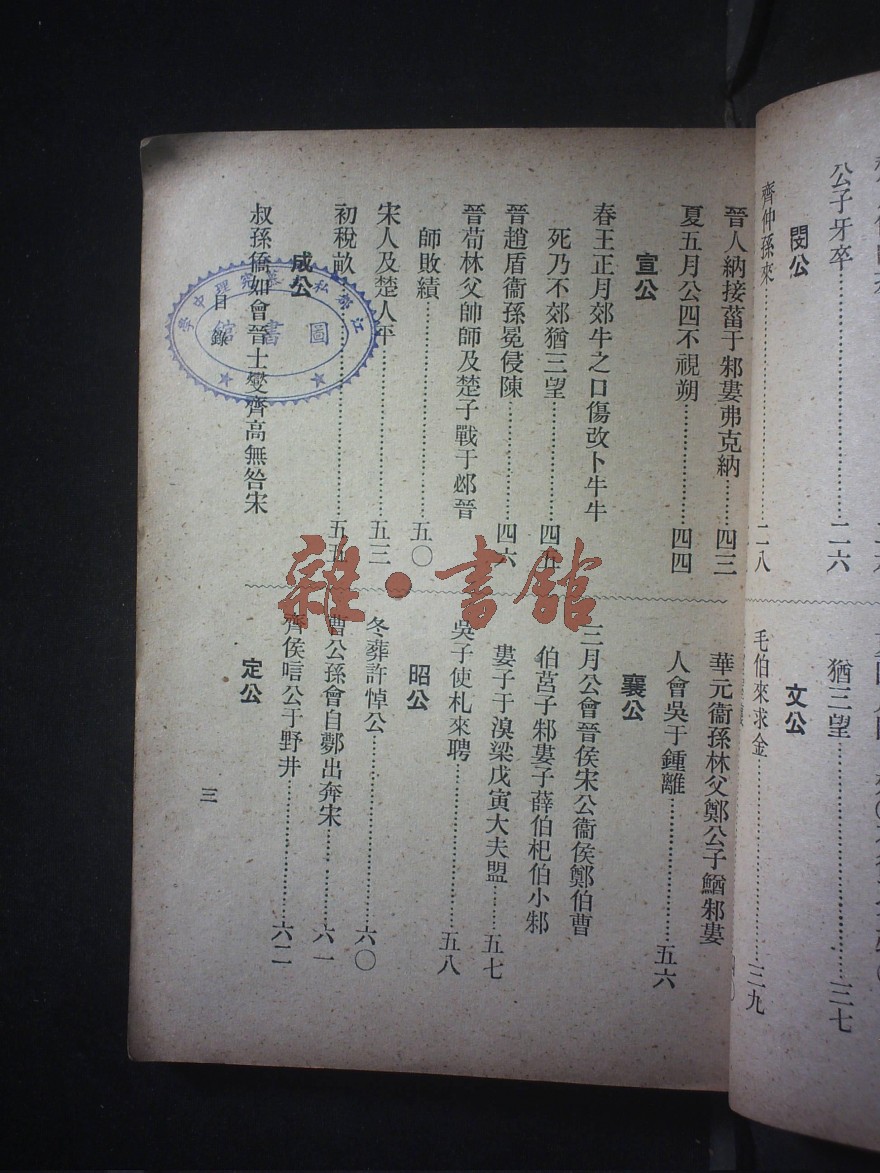 公子牙卒……二六
閔公
齊仲孫來……二八
猶三望……三七
文公
毛伯來求金……三九
晉人納接菑于邾婁弗克納……四三
夏五月公四不視朔……四四
宣公
春王正月郊牛之口傷改卜牛牛
死乃不郊猶三望……四五
晉趙盾衞孫免侵陳……四六
晉荀林父帥師及楚子戰于邲晉
師敗績……五〇
宋人及楚人平……五三
初稅畝……五五
成公
叔孫僑如會晉士燮齊高無咎宋
華元衞孫林父鄭公子鰌邾婁
人會吳于鍾離……五六
襄公
三月公會晉侯宋公衞侯鄭伯曹
伯莒子邾婁子薛伯杞伯小邾
婁子于溴梁戊寅大夫盟……五七
吳子使札來聘……五八
昭公
冬葬許悼公……六〇
曹公孫會自鄸出奔宋……六一
齊侯唁公于野井……六二
定公
目錄
三
圖書館
雜·書館